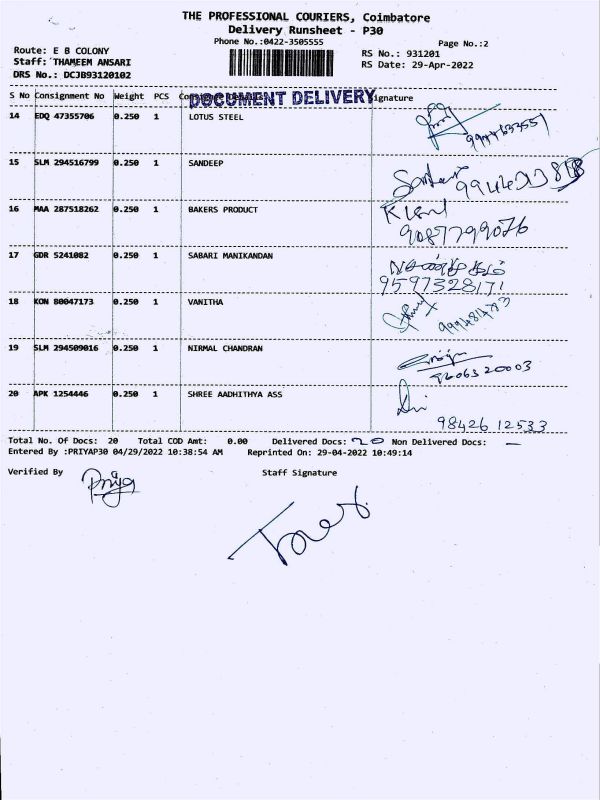 THE PROFESSIONAL COURIERS, Coimbatore
Delivery Runsheet - P30
Phone No.:0422-3505555
Page No.:2
Route: E B COLONY
RS No.: 931201
Staff: THAMEEM ANSARI
RS Date: 29-Apr-2022
DRS No.: DCJB93120102
S No Consignment No Weight PCS Consignee Signature
DOCUMENT DELIVERY
14 EDQ 47355706 0.250 1 LOTUS STEEL
15 SLM 294516799 0.250 1 SANDEEP
16 MAA 287518262 0.250 1 BAKERS PRODUCT
9087799076
17 GDR 5241082 0.250 1 SABARI MANIKANDAN
9597328171
18 KON 80047173 0.250 1 VANITHA
19 SLM 294509016 0.250 1 NIRMAL CHANDRAN
9606520003
20 APK 1254446 0.250 1 SHREE AADHITHYA ASS
98426 12533
Total No. Of Docs: 20 Total COD Amt: 0.00 Delivered Docs: 20 Non Delivered Docs: —
Entered By :PRIYAP30 04/29/2022 10:38:54 AM Reprinted On: 29-04-2022 10:49:14
Verified By Priya Staff Signature